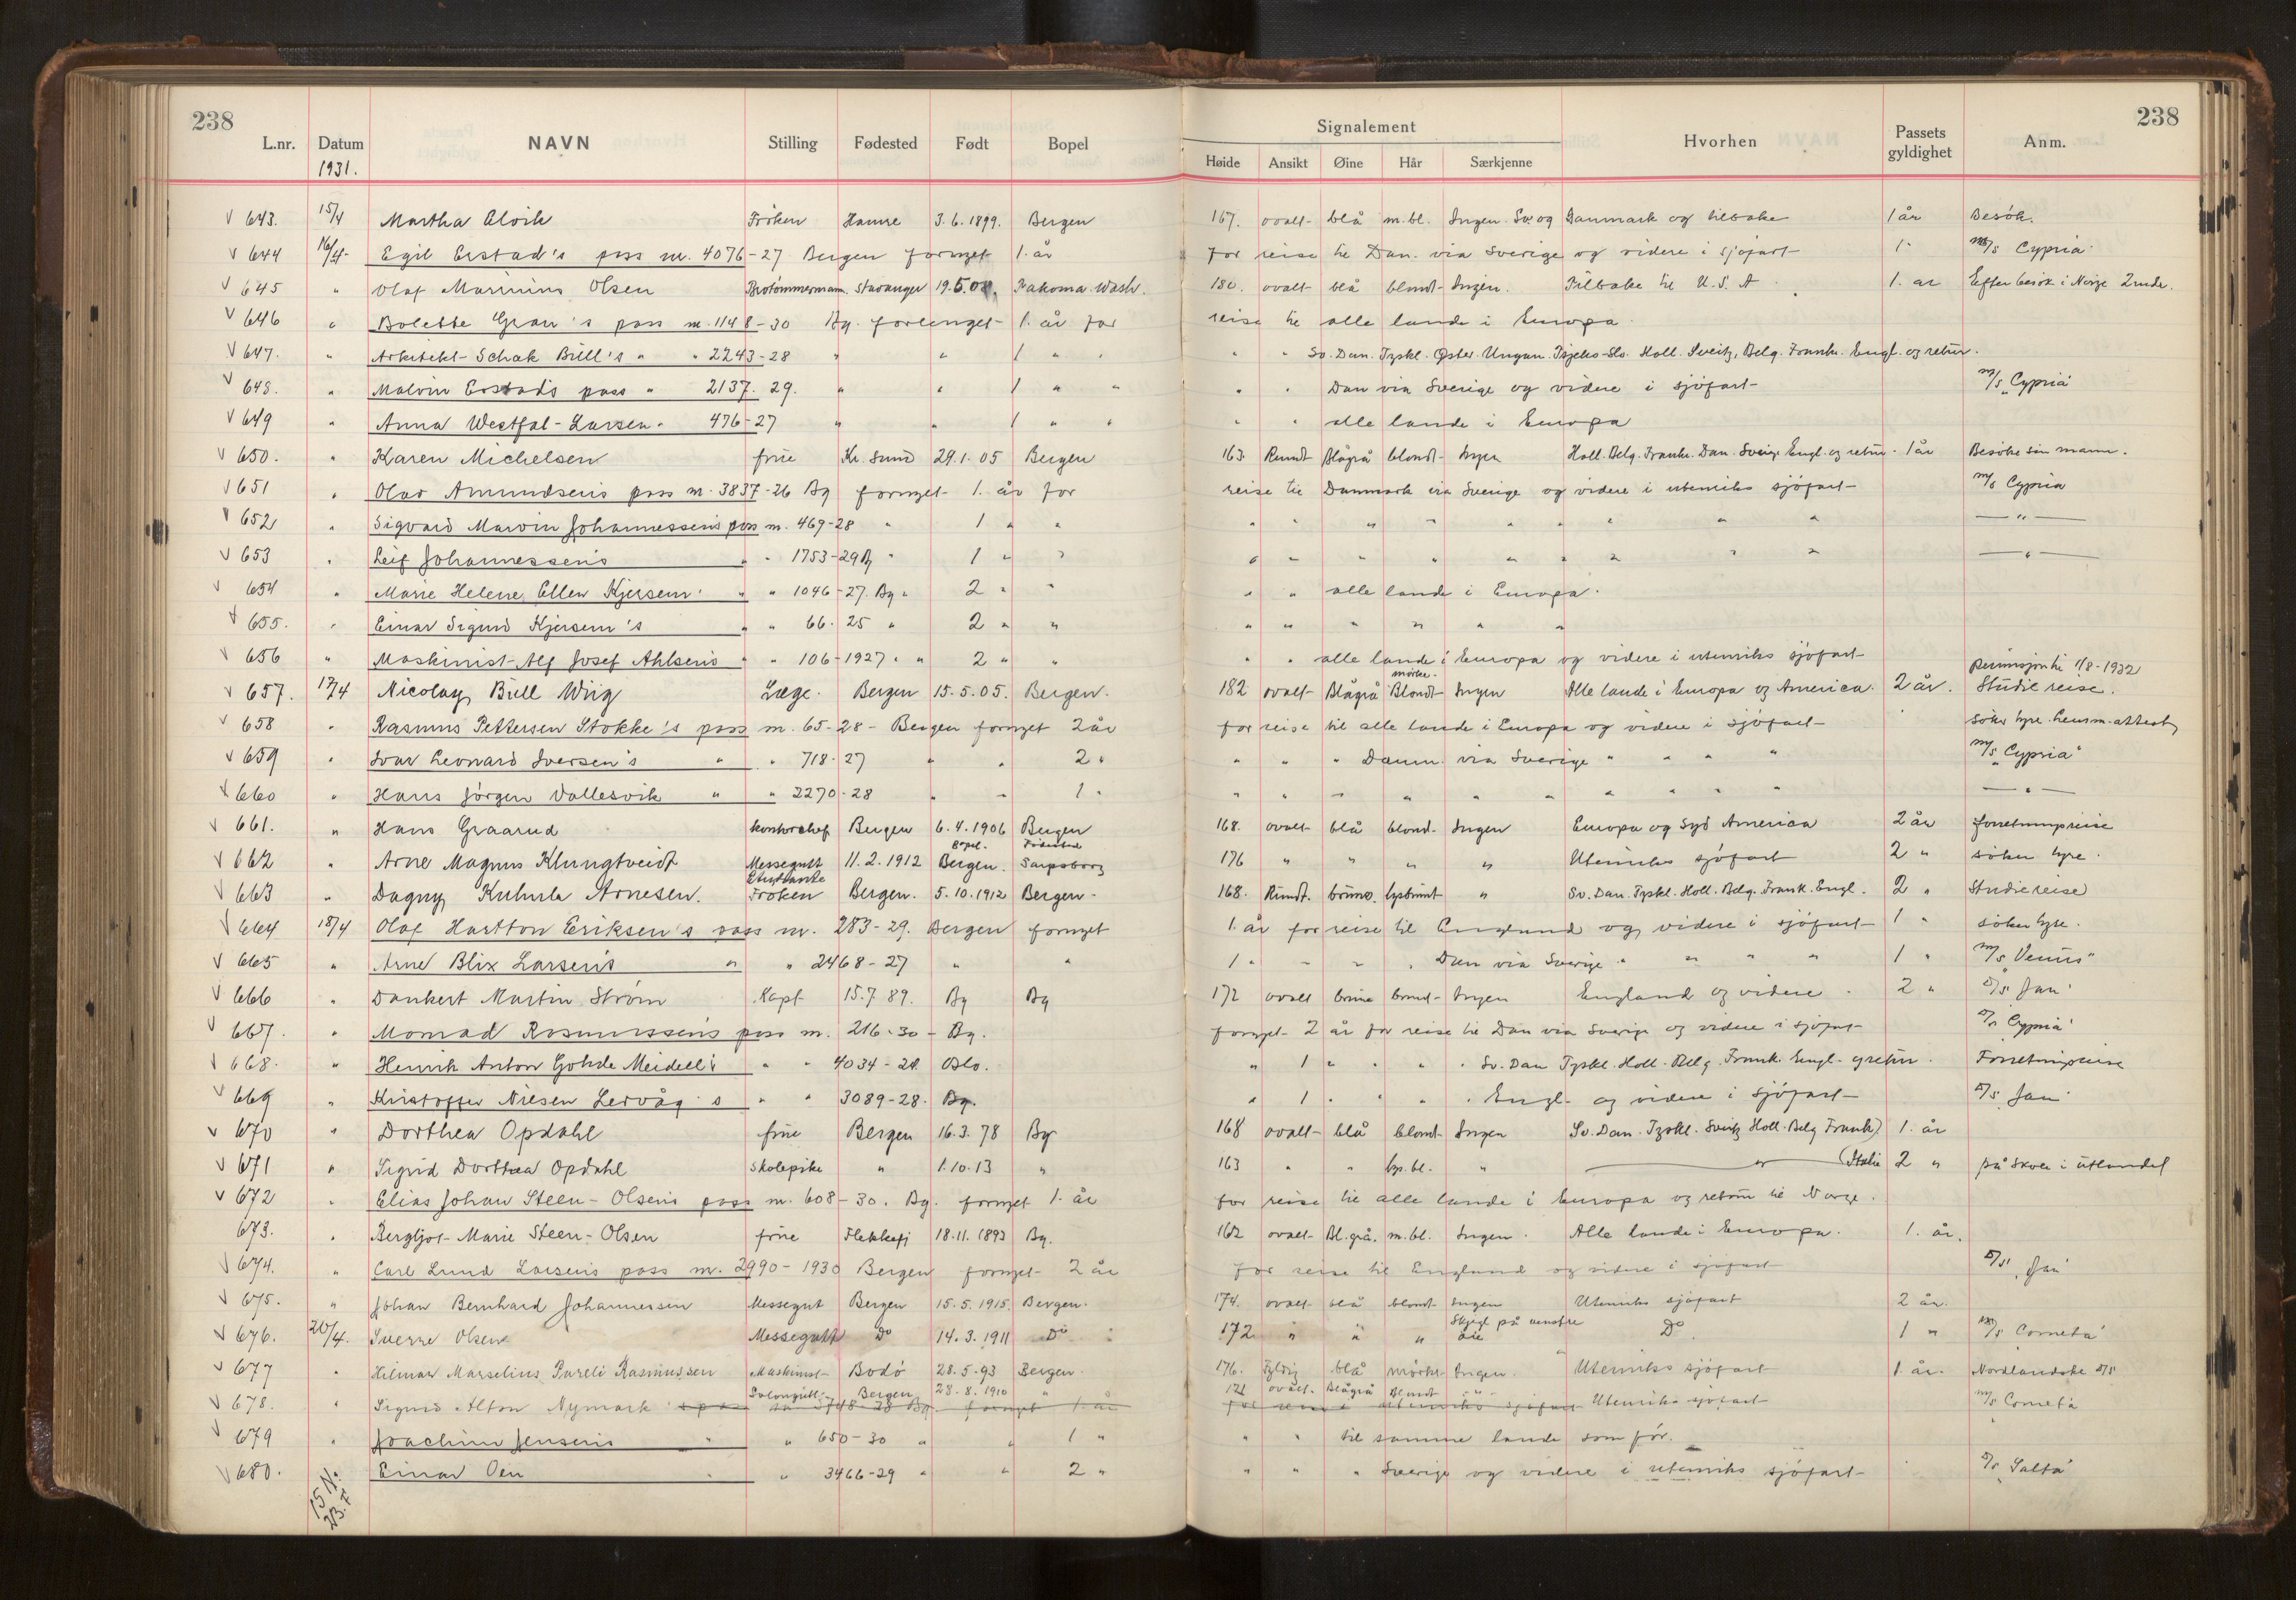 238
238
L.nr. Datum NAVN Stilling Fødested Født Bopel
Signalement
Høide Ansikt Øine Hår Særkjenne Hvorhen Passets gyldighet Anm.
1931.
643. 15/4 Martha Fröken 3.6.1899. Bergen 167. ovalt blå m.bl. Ingen Sv. og Danmark og tilbake 1 år Besök.
644 16/4 Egil Erstad's pass nr. 4076-27 Bergen fornyet 1. år for reise til Dan. via Sverige og videre i sjöfart 1 " M/S Cypria
645 " Olaf Marinius Olsen Stavanger 19.5.08. Takoma Wash. 180. ovalt blå blondt Ingen. Tilbake til U.S.A 1. år Efter besök i Norge 2 mdr.
646 " Bolette Gran's pass nr. 1148-30 Bg. forlenget 1. år for reise til alle lande i Europa
647. " Arkitekt Schak Bull's " " 2243-28 " " 1 " " " " Sv. Dan. Tyskl. Øster. Ungarn. Tsjeko-Slo. Holl. Sveitz, Belg. Frankr. Engl. og retur.
648. " Malvin Erstads pass " 2137. 29. " " 1 " " " " Dan via Sverige og videre i sjöfart M/S "Cypria"
649 " Anna Westfal-Larsen " 476-27 " " 1 " " " " alle lande i Europa
650. " Karen Michelsen frue Kr. Sund 29.1.05 Bergen 163 Rundt Blågrå blondt Ingen Holl. Belg. Frankr. Dan. Sverige Engl. og retur 1 år Besöke sin mann.
651 " Olav Amundsens pass nr. 3837-26 Bg fornyet 1. år for reise til Danmark via Sverige og videre i utenriks sjöfart M/S Cypria
652 " Sigvard Marvin Johannessens pass nr. 469-28 " 1 " " " " " " " " " " " — " —
653 " Leif Johannessens " " 1753-29 Bg " 1 " " " " " " " " " " " — " —
654 " Marie Helene Ellen Kjersem " " 1046-27. Bg " 2 " " " " alle lande i Europa.
655. " Einar Sigurd Kjersem's " " 66. 25 " 2 " " " " " " " "
656 " Maskinist Alf Josef Ahlsens " " 106-1927 " " 2 " " " " alle lande i Europa og videre i utenriks sjöfart
657. 17/4 Nicolay Bull Wiig Læge. Bergen 15.5.05. Bergen. 182 ovalt Blågrå mørke. Blondt Ingen Alle lande i Europa og America. 2 år. 1/8-1932 Studiereise.
658 " Rasmus Pettersen Stokke's pass nr. 65-28 - Bergen fornyet 2 år for reise til alle lande i Europa og videre i sjöfart söker hyre. lensm. attest
659 " Ivar Leonard Iversen's " " 718-27 " " 2 " " " " Danm. via Sverige " " " " M/S "Cypria"
660 " Hans Jörgen Vallesvik " " 2270-28 " " 1 " " " " " " " " " " " — " —
661. " Hans Graarud kontorchef Bergen 6.4.1906 Bergen 168. ovalt blå blond. Ingen Europa og Syd America 2 år forretningsreise
662 " Arne Magnus Klungtveidt Messegutt 11.2.1912 Bopel. Bergen. Fødested Sarpsborg 176 " " " " Utenriks sjöfart 2 " söker hyre.
663 " Dagny Arnesen. Studerende Fröken Bergen. 5.10.1912 Bergen 168. Rundt. brune. lysbrunt " Sv. Dan. Tyskl. Holl. Belg. Frank. Engl. 2 " Studiereise
664 18/4 Olaf Hartton Eriksen's pass nr. 283-29. Bergen fornyet 1. år for reise til England og videre i sjöfart 1 " söker hyre.
665 " Arne Blix Larsens " " 2468-27 " " 1 " " " " Dan via Sverige " " " " 1 " M/S "Venus"
666 " Dankert Martin Ström Kapt 15.7.89. Bg Bg 172 ovalt brune brunt Ingen England og videre 2 " S/S "Jan"
667. " Monrad Rasmussens pass nr. 216-30 - Bg. fornyet 2 år for reise til Dan via Sverige og videre i sjöfart "Cypria"
668. " Henrik Anton Gohde Meidell's " " 4034-28. Oslo. " 1 " " " " Sv. Dan Tyskl. Holl. Belg. Frank. Engl. og retur. Forretningsreise
669 " Kristoffer Nilsen Lervåg's " " 3089-28. Bg. " 1. " " " " Engl. og videre i sjöfart S/S "Jan"
670 " Dorthea Opdahl frue Bergen 16.3.78 Bg 168 ovalt blå blondt Ingen Sv. Dan. Tyskl. Sveitz Holl. Belg Frank) 1. år
671 " Sigrid Dorthea Opdahl Skolepike " 1.10.13 " 163 " " lys.bl. " — " — (Italie 2 " på skole i utlandet
672 " Elias Johan Steen-Olsens pass nr. 608-30. Bg. fornyet 1. år for reise til alle lande i Europa og retur til Norge.
673. " Bergljot Marie Steen-Olsen frue Flekkefj 18.11.1893 Bg. 162 ovalt Bl.grå. m.bl. Ingen. Alle lande i Europa. 1. år.
674. " Carl Lund Larsens pass nr. 2990-1930 Bergen fornyet 2 år for reise til England og videre i sjöfart S/S "Jan"
675. " Johan Bernhard Johannessen Messegut Bergen 15.5.1915. Bergen. 174. ovalt blå blondt Ingen Utenriks sjöfart 2 år.
676. 20/4. Sverre Olsen Messegutt Do 14.3.1911 Do 172 " " " på venstre öie Do. 1 " M/S Cometa"
677 " Hilmar Marselius Rasmussen Maskinist Bodö 28.5.93 Bergen. 176. Fyldig blå mörke Ingen. Utenriks sjöfart 1. år. Nordlandske D/S
678. " Sigurd Alfon Nymark Salongutt Bergen 28.8.1910 " 171 ovalt. Blågrå Blondt " Utenriks sjöfart M/S Cometa
679 " Joachim Jensens " " 650-30 " " 1 " " " til samme lande som för.
680. " Einar Oen " " 3466-29 " " 2 " " " " Sverige og videre i utenriks sjöfart S/S "Salta"
15 N.
23. F